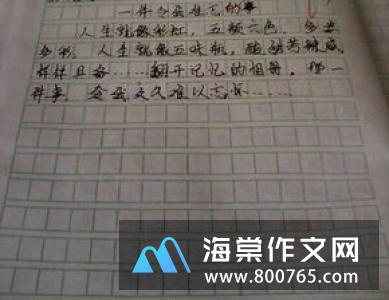 一件令我难忘的事
人生就像彩虹，五颜六色，多姿
多彩。人生就像五味瓶，酸甜苦辣咸，
样样具备……翻开记忆的相册，那一
件事，令我久久难以忘怀……
海棠作文网
www.800765.com